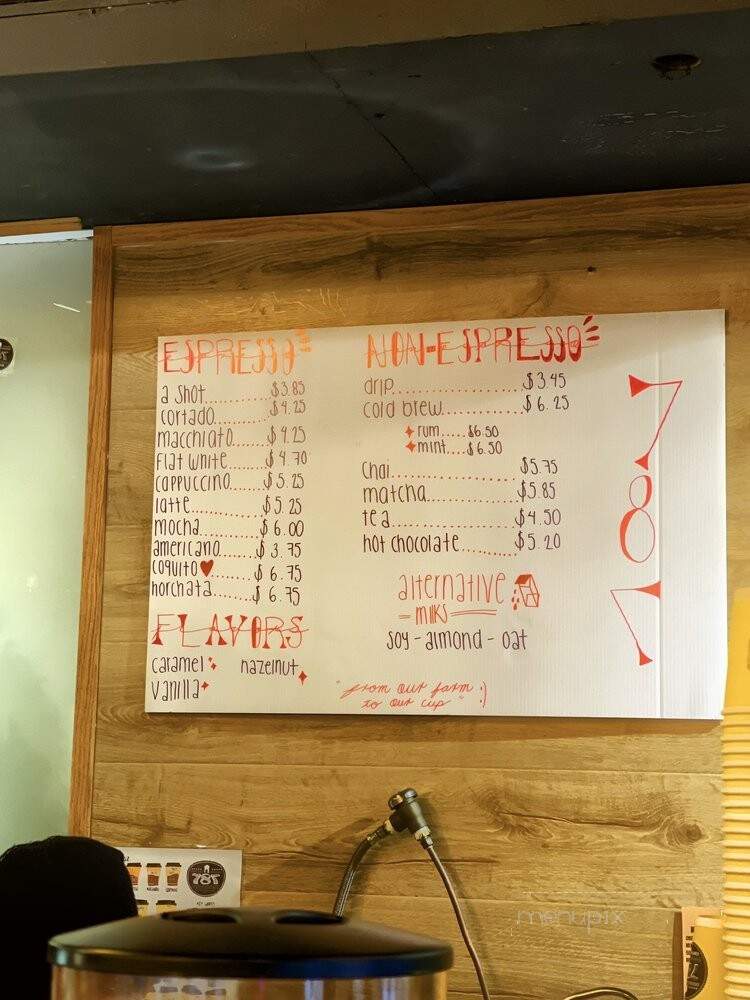 ESPRESSO
a shot........$3.85
cortado........$4.25
macchiato......$4.25
flat white......$4.70
cappuccino......$5.25
latte........$5.25
mocha........$6.00
americano......$3.75
coquito♥......$6.75
horchata......$6.75
FLAVORS
caramel hazelnut
vanilla
NON-ESPRESSO
drip........$3.45
cold brew........$6.25
rum.....$6.50
mint....$6.50
chai........$5.75
matcha........$5.85
tea........$4.50
hot chocolate......$5.20
alternative
milks
soy - almond - oat
"from our farm
to our cup" :)
787
787
menupix